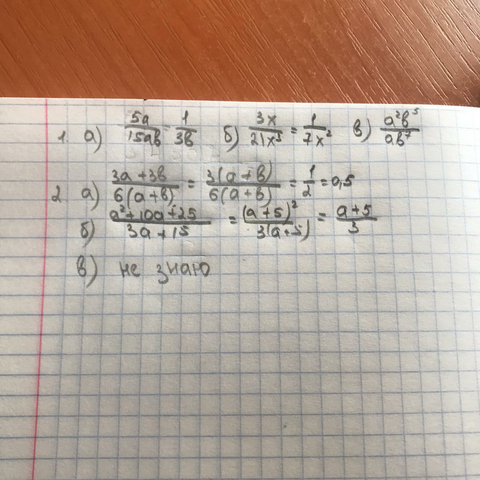 1. а) 5a/15ab = 1/3b б) 3x/21x³ = 1/7x² в) a²b⁵/ab⁷
2. а) 3a+3b/6(a+b) = 3(a+b)/6(a+b) = 1/2 = 0,5
б) a²+10a+25/3a+15 = (a+5)²/3(a+5) = a+5/3
в) не знаю